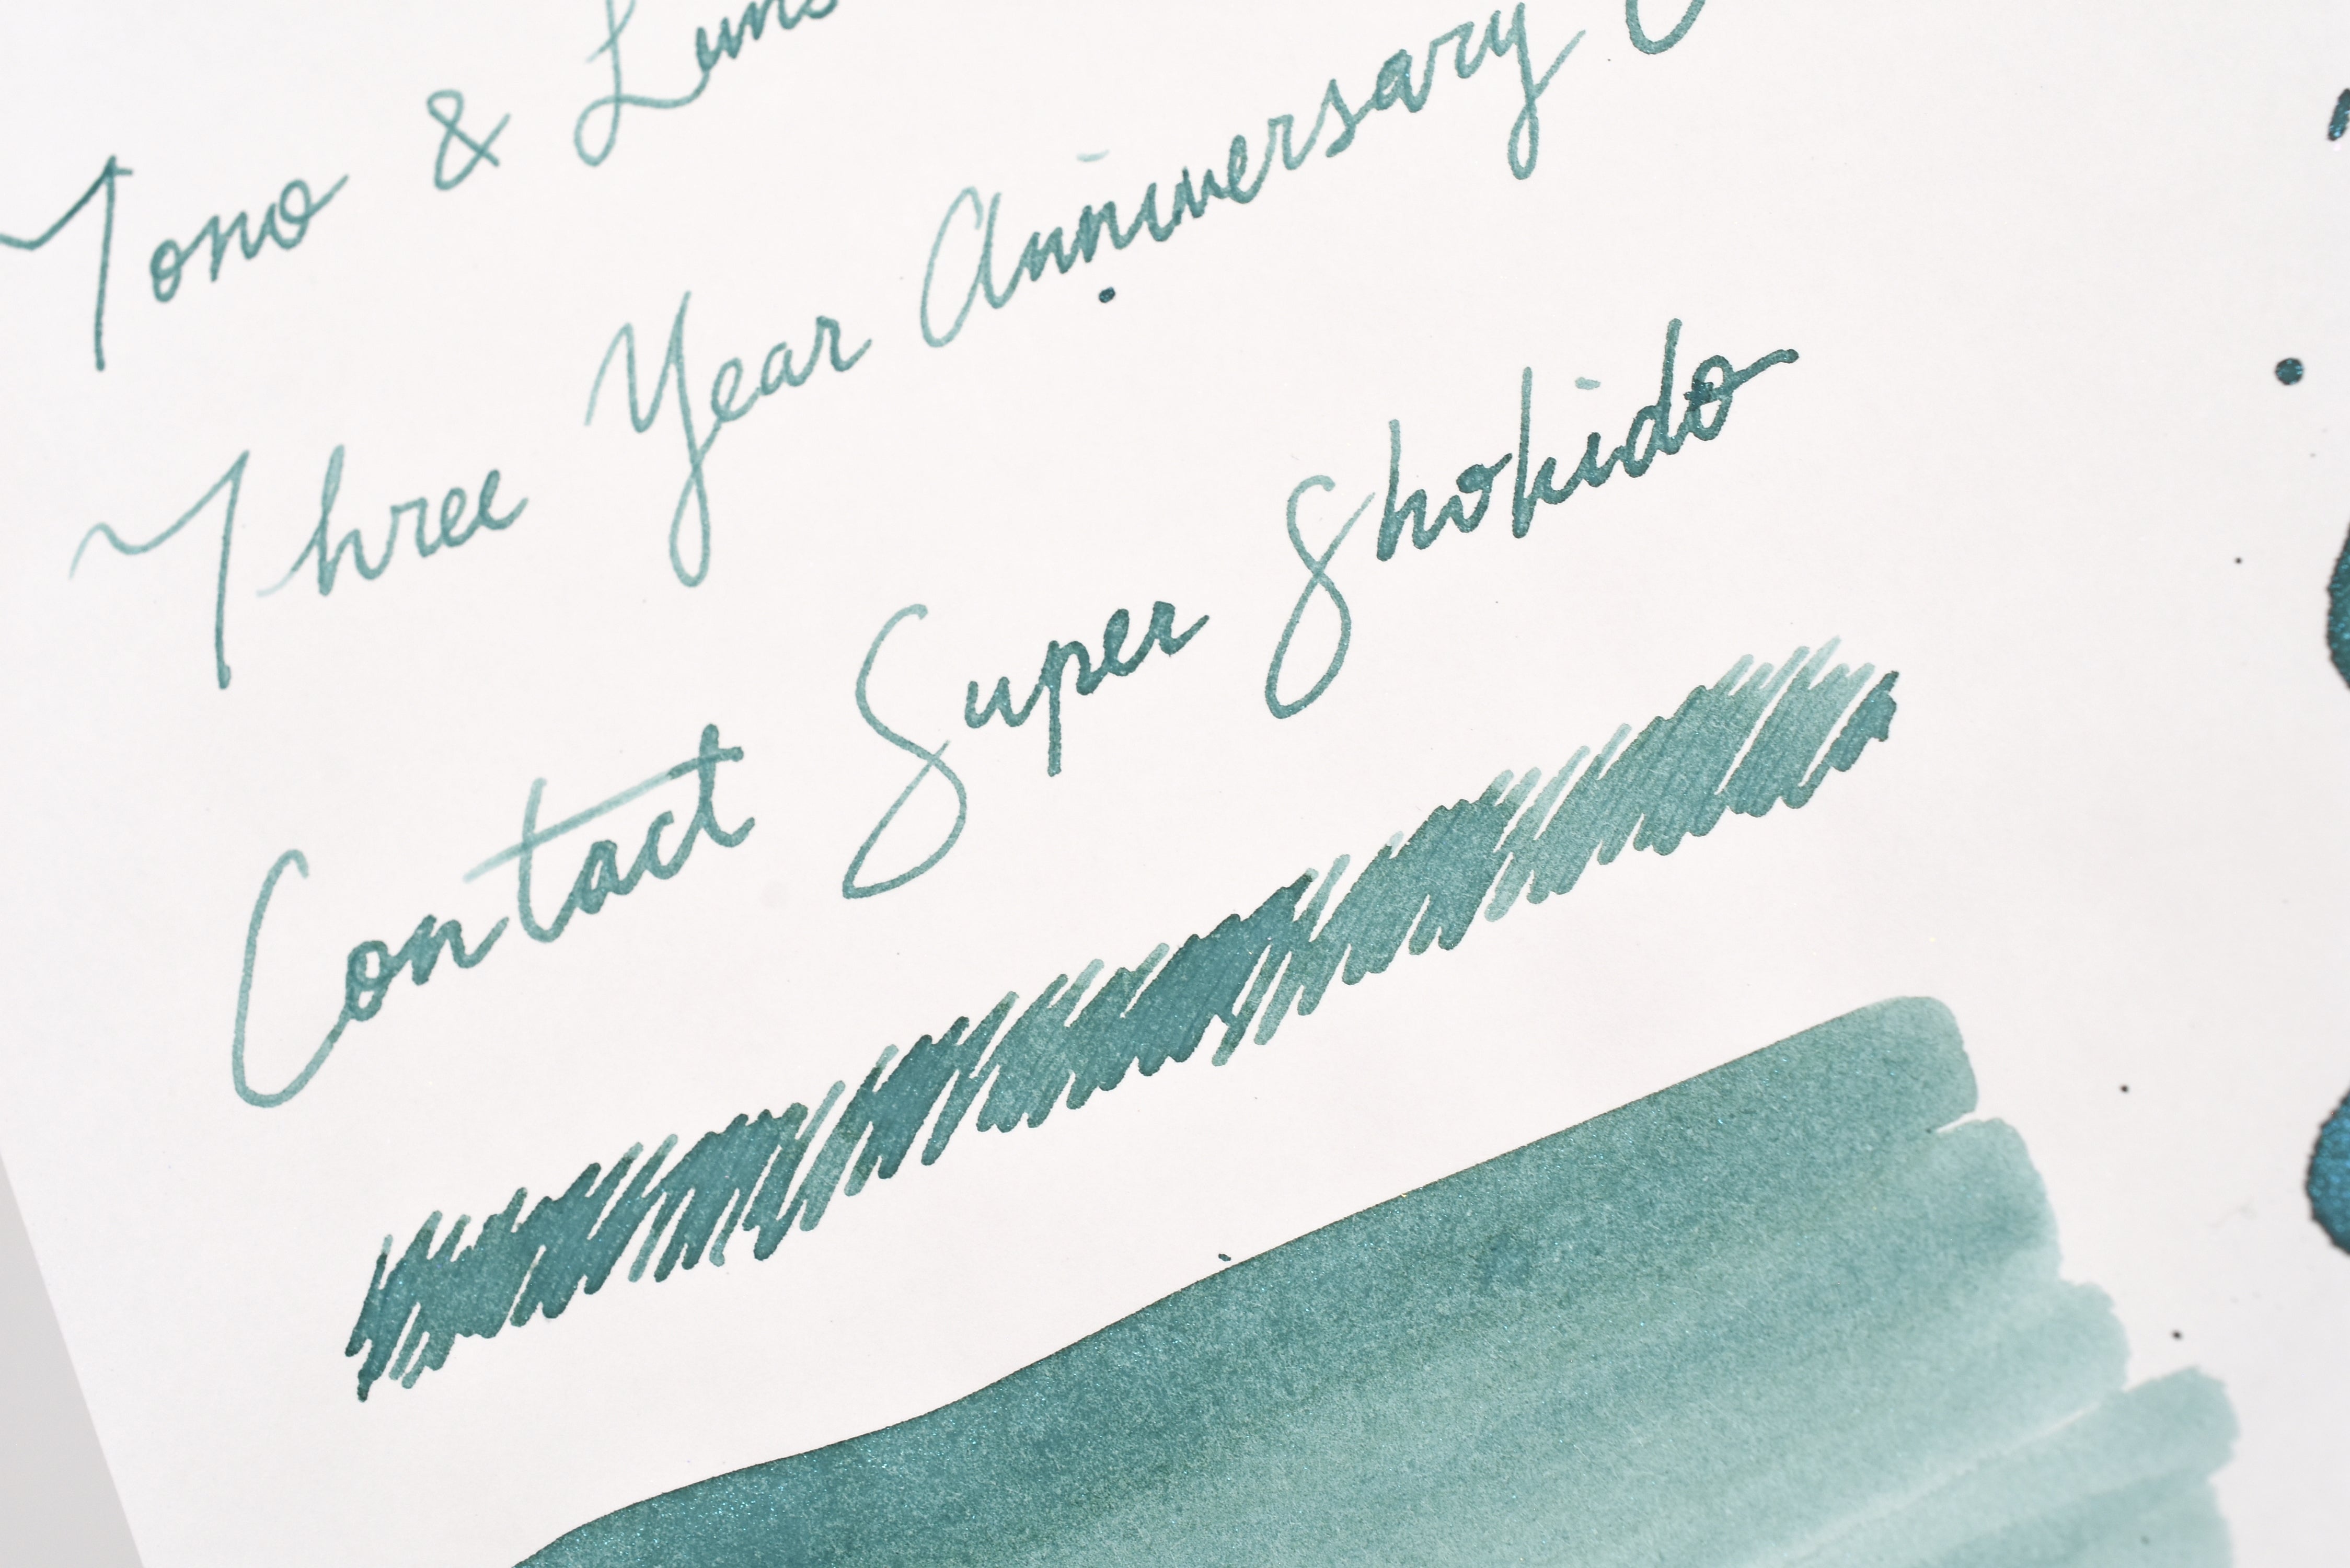 Tono & Lums
Three Year Anniversary
Contact Super Shokido